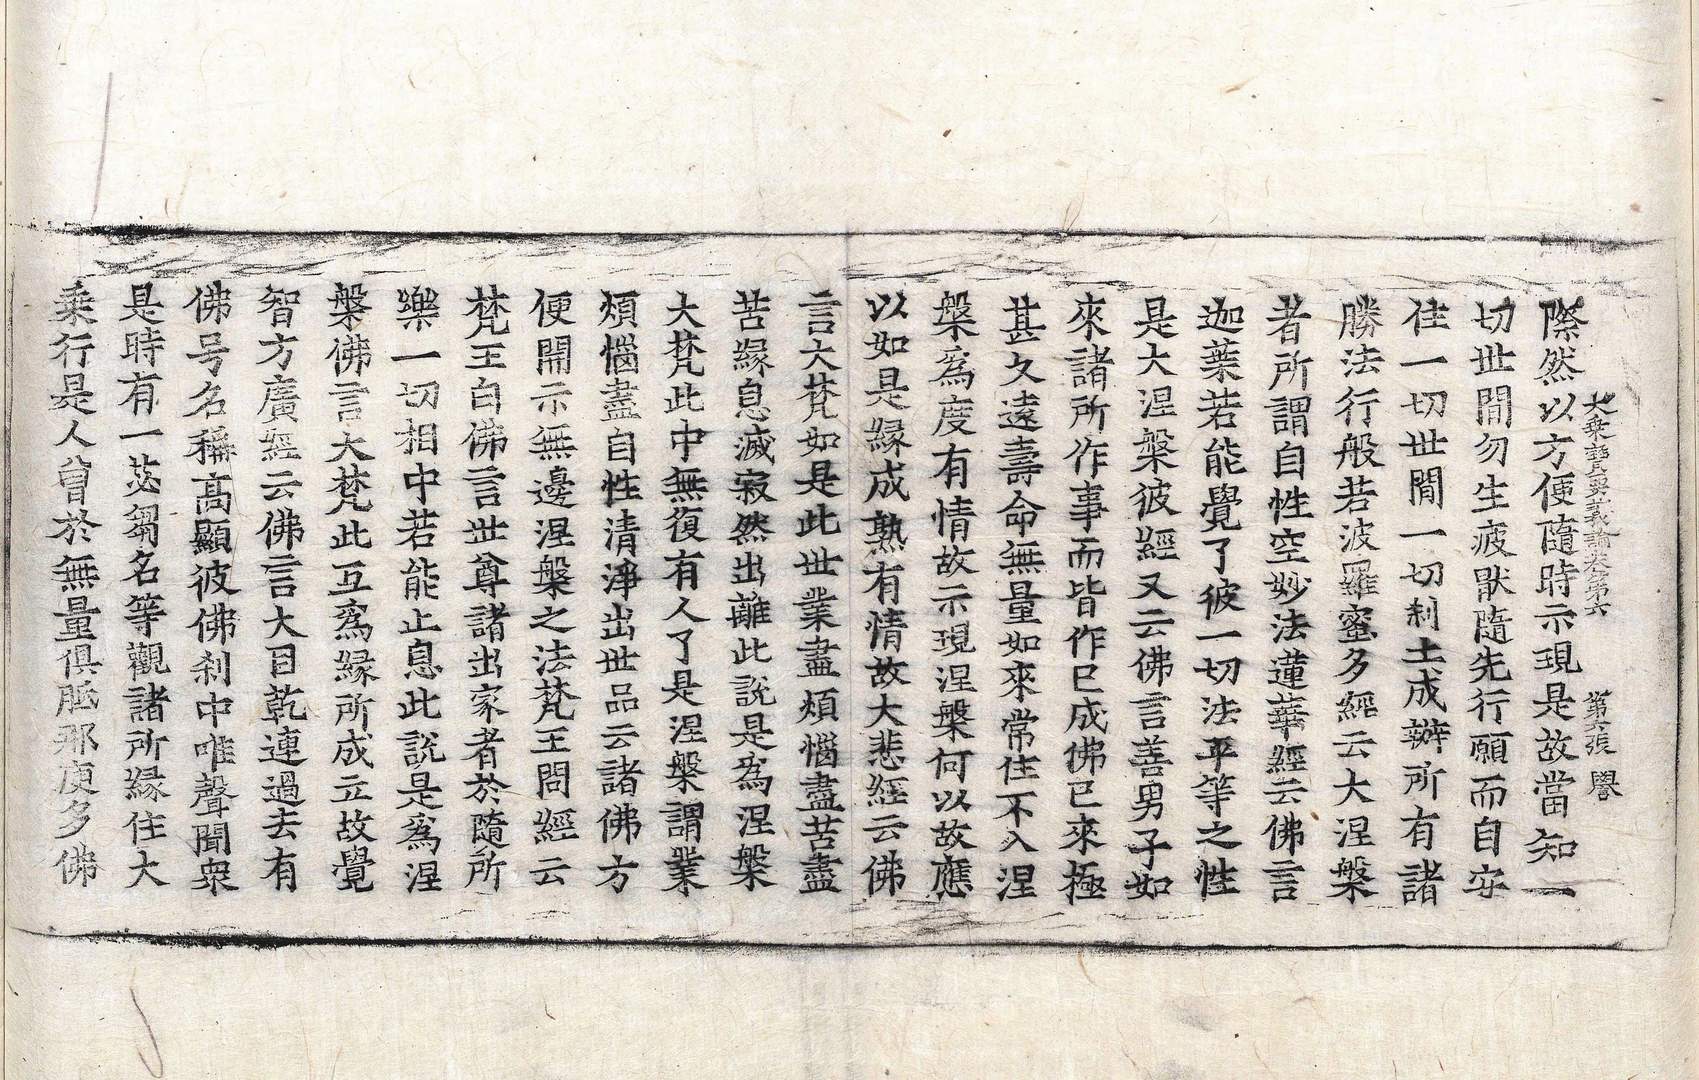 大乘寶要義論卷第六 第六張 譽
際然以方便隨時示現是故當知一
切世間勿生疲猒隨先行願而自安
住一切世間一切刹土成辦所有諸
勝法行般若波羅蜜多經云大涅槃
者所謂自性空妙法蓮華經云佛言
迦葉若能覺了彼一切法平等之性
是大涅槃彼經又云佛言善男子如
來諸所作事而皆作已成佛已來極
甚久遠壽命無量如來常住不入涅
槃爲度有情故示現涅槃何以故應
以如是縁成熟有情故大悲經云佛
言大梵如是此世業盡煩惱盡苦盡
苦縁息滅寂然出離此說是爲涅槃
大梵此中無復有人了是涅槃謂業
煩惱盡自性清淨出世品云諸佛方
便開示無邊涅槃之法梵王問經云
梵王白佛言世尊諸出家者於隨所
樂一切相中若能止息此說是爲涅
槃佛言大梵此互爲縁所成立故覺
智方廣經云佛言大目乾連過去有
佛号名稱高顯彼佛刹中唯聲聞衆
是時有一苾芻名等觀諸所縁住大
乗行是人曾於無量俱胝那庾多佛